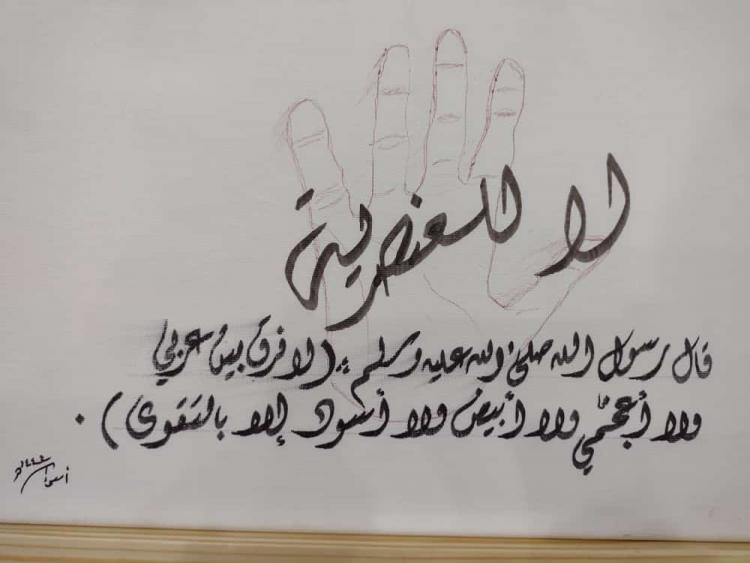 لا للعنصرية
قال رسول الله صلى الله عليه وسلم :: (لا فرق بين عربي
ولا أعجمي ولا أبيض ولا أسود إلا بالتقوى) .